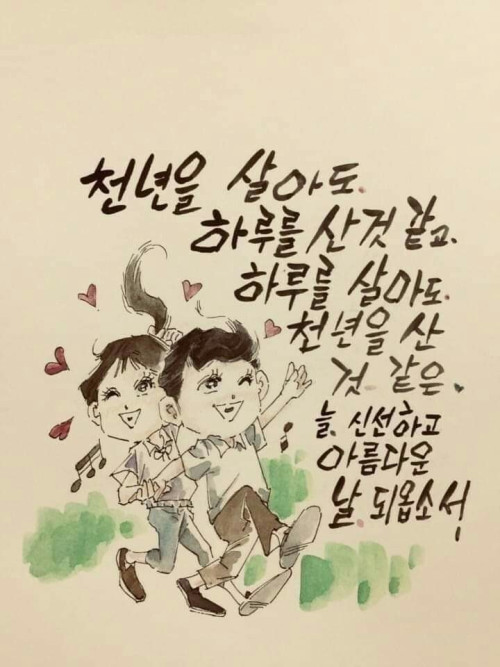 천년을 살아도.
하루를 산것 같고.
하루를 살아도.
천년을 산
것. 같은.
늘. 신선하고
아름다운
날. 되옵소서